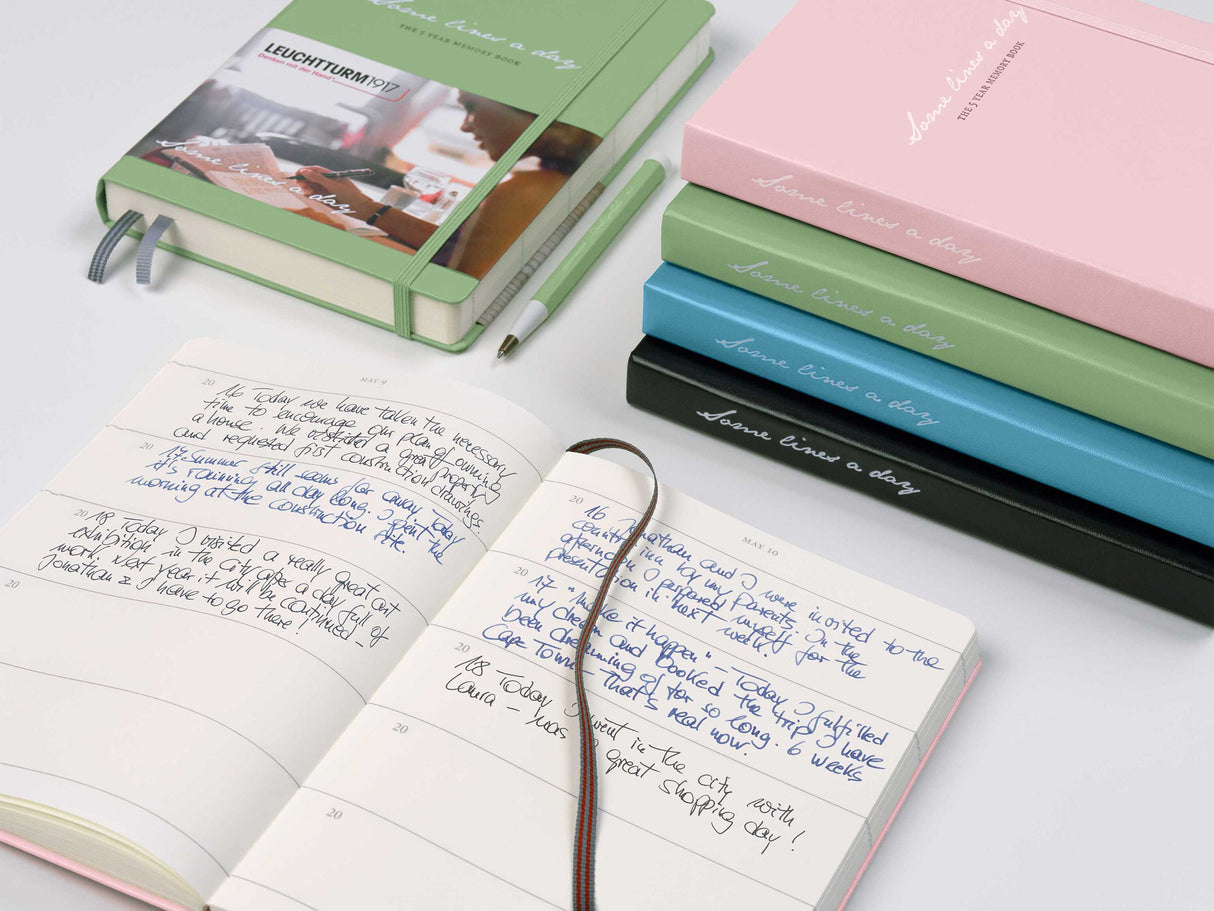 Some lines a day
THE 5 YEAR MEMORY BOOK
LEUCHTTURM1917
Denken mit der Hand
Some lines a day
Some lines a day
THE 5 YEAR MEMORY BOOK
Some lines a day
Some lines a day
Some lines a day
Some lines a day
MAY 9
20 16 Today we have taken the necessary
time to encourage our plan of owning
a house. We visited a great property
and requested first construction drawings.
20 17 Summer still seems far away. Today
it's raining all day long. I spent the
morning at the construction site.
20 18 Today I visited a really great art
exhibition in the city after a day full of
work. Next year it will be continued –
Jonathan & I have to go there!
20
MAY 10
20 16 Jonathan and I were invited to the
country inn by my parents. In the
afternoon I prepared myself for the
presentation in next week.
20 17 "Make it happen" – Today I fulfilled
my dream and booked the trip I have
been dreaming of for so long. 6 weeks
Cape Town – that's real now.
20 18 Today I went in the city with
Laura – was a great shopping day!
20
20